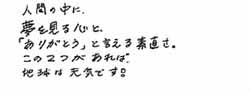 人間の中に、
夢を見る心と、
「ありがとう」と言える素直さ。
この2つがあれば、
地球は元気です。